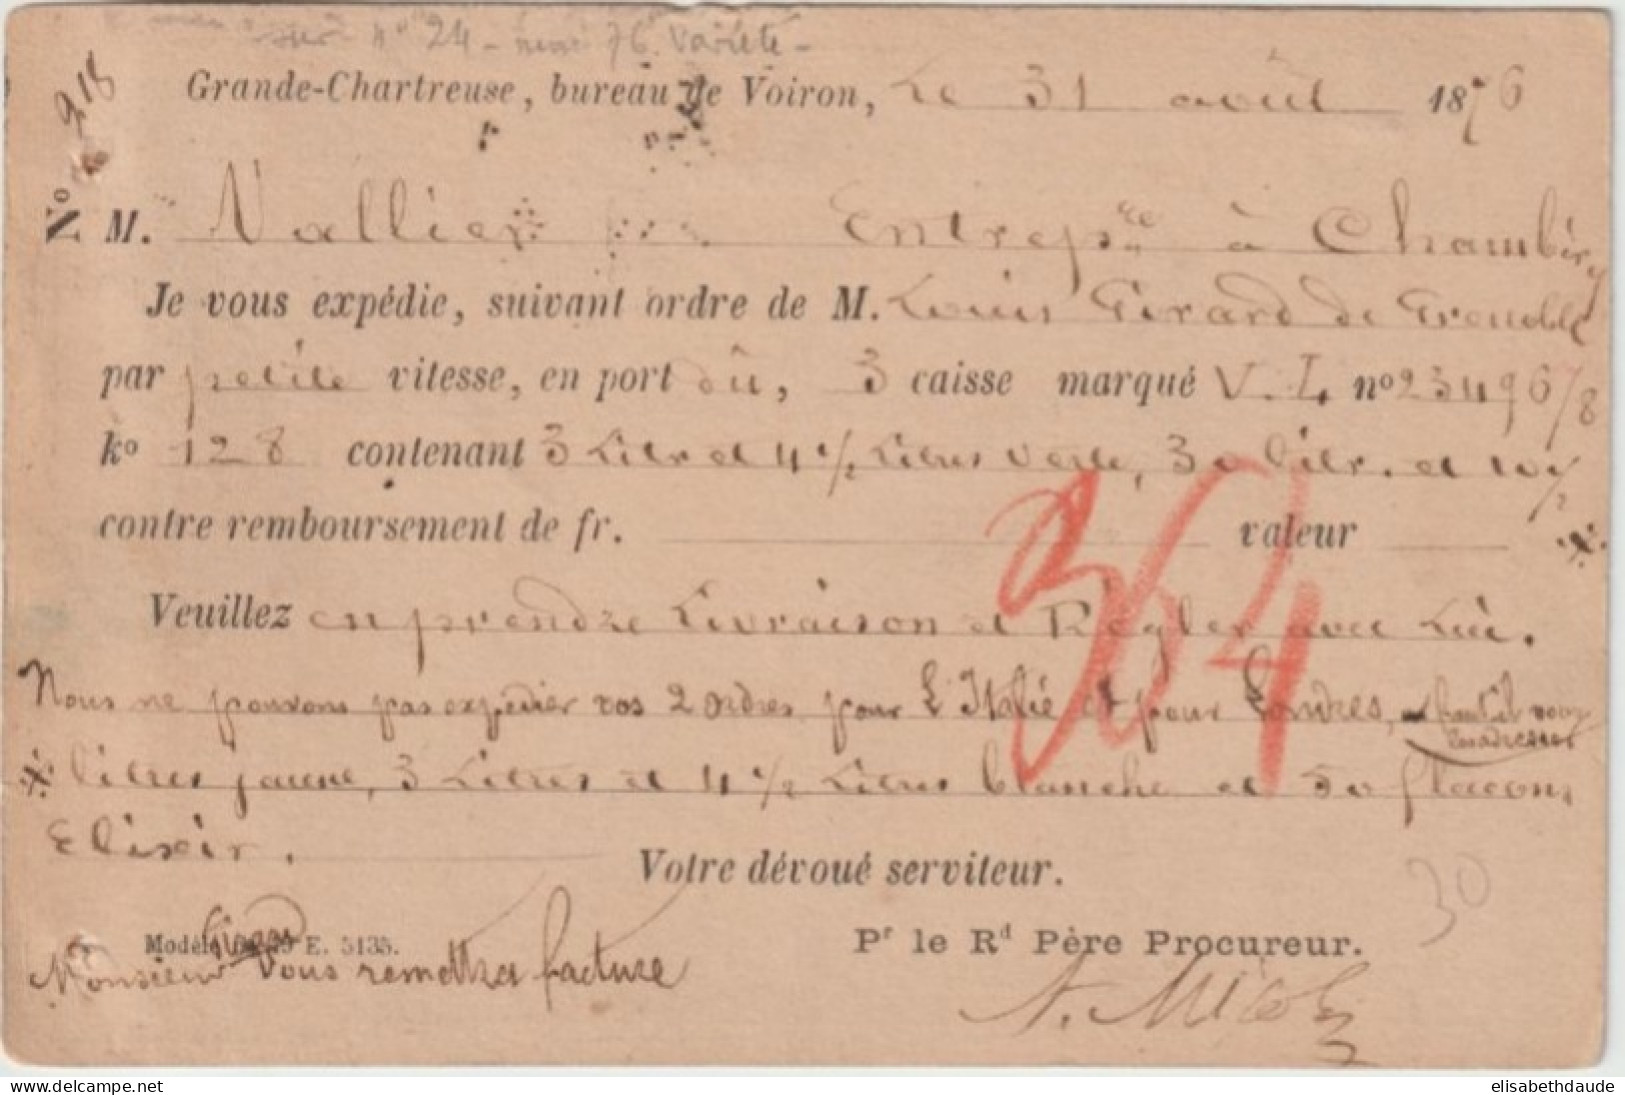 sur n° 24 - 76. Variété -
Grande-Chartreuse, bureau de Voiron, Le 31 août 1876
N° 918
M. Vallier Entrep^re à Chambéry
Je vous expédie, suivant ordre de M. Louis Girard de Grenoble
par petite vitesse, en port dû, 3 caisse marqué V. L. n° 23496/8
k° 128 contenant 3 Litr et 4 ½ Litres verte, 30 litr. et 10/2
contre remboursement de fr. valeur
Veuillez en prendre Livraison et Régler avec Lui.
Nous ne pouvons pas expédier vos 2 ordres pour L'Italie et pour Londres,
litres jaune, 3 Litres et 4 ½ Litres blanche et 50 flacons
Elixir.
Votre dévoué serviteur.
364
30
Modèle E. 5135.
P^r le R^d Père Procureur.
Monsieur Girard vous remettra facture
www.delcampe.net
elisabethdaude